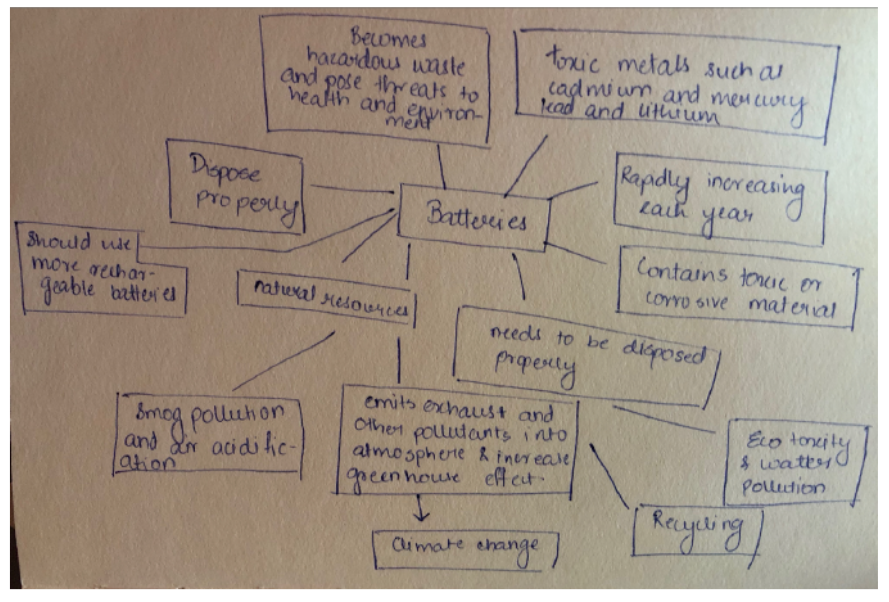 Becomes
hazardous waste
and pose threats to
health and environ-
ment
toxic metals such as
cadmium and mercury
lead and lithium
Dispose
properly
Batteries
Rapidly increasing
each year
Should use
more rechar-
geable batteries
natural resources
Contains toxic or
corrosive material
needs to be disposed
properly
Smog pollution
and air acidific-
ation
emits exhaust and
other pollutants into
atmosphere & increase
greenhouse effect.
Eco toxcity
& water
pollution
Recycling
Climate change